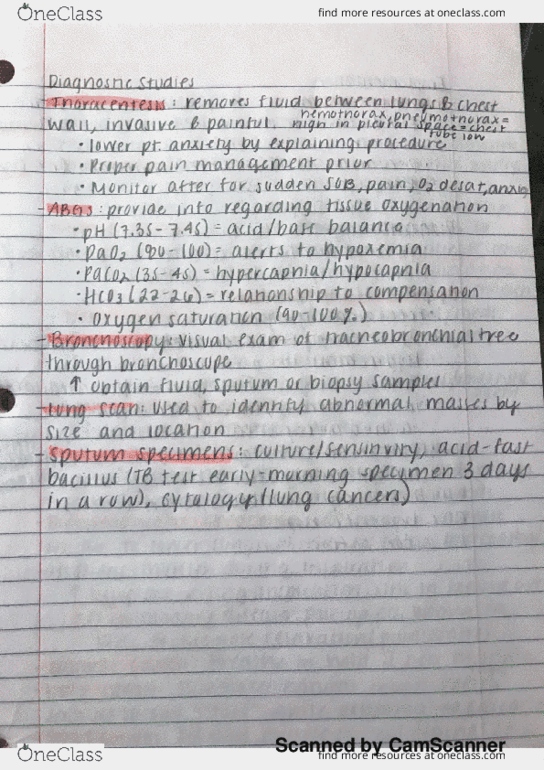 OneClass
find more resources at oneclass.com
Diagnostic Studies
- Thoracentesis: removes fluid between lungs & chest
hemothorax, pneumothorax =
wall, invasive & painful. high in pleural space = chest
tube low
• lower pt. anxiety by explaining procedure
• Proper pain management prior
• Monitor after for sudden SOB, pain, O2 desat, anxiety
- ABGs: provide info regarding tissue oxygenation
• pH (7.35-7.45) = acid/base balance
• PaO2 (80-100) = alerts to hypoxemia
• PaCO2 (35-45) = hypercapnia/hypocapnia
• HCO3 (22-26) = relationship to compensation
• Oxygen saturation (90-100%)
- Bronchoscopy: visual exam of tracheobronchial tree
through bronchoscope
↑ obtain fluid, sputum or biopsy samples
- Lung scan: used to identify abnormal masses by
size and location
- Sputum specimens: culture/sensitivity, acid-fast
bacillus (TB test early-morning specimen 3 days
in a row), cytology (lung cancers)
Scanned by CamScanner
OneClass
find more resources at oneclass.com